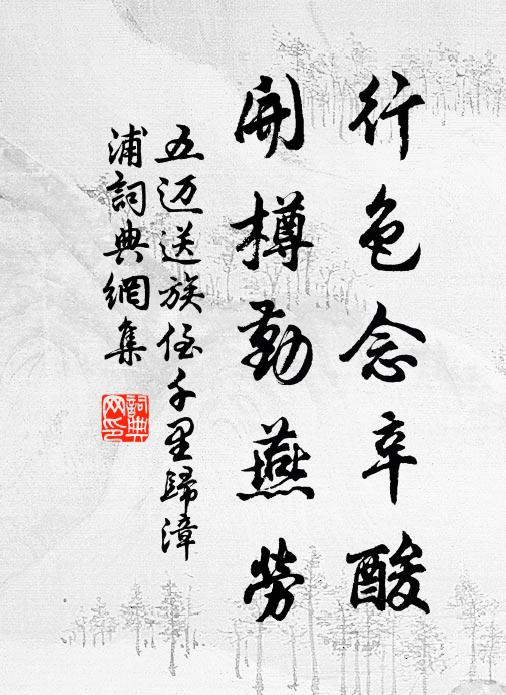 行色念辛酸
開樽勤燕勞
五迈送族侄千里歸漳
浦詞典網集
詞典
网印